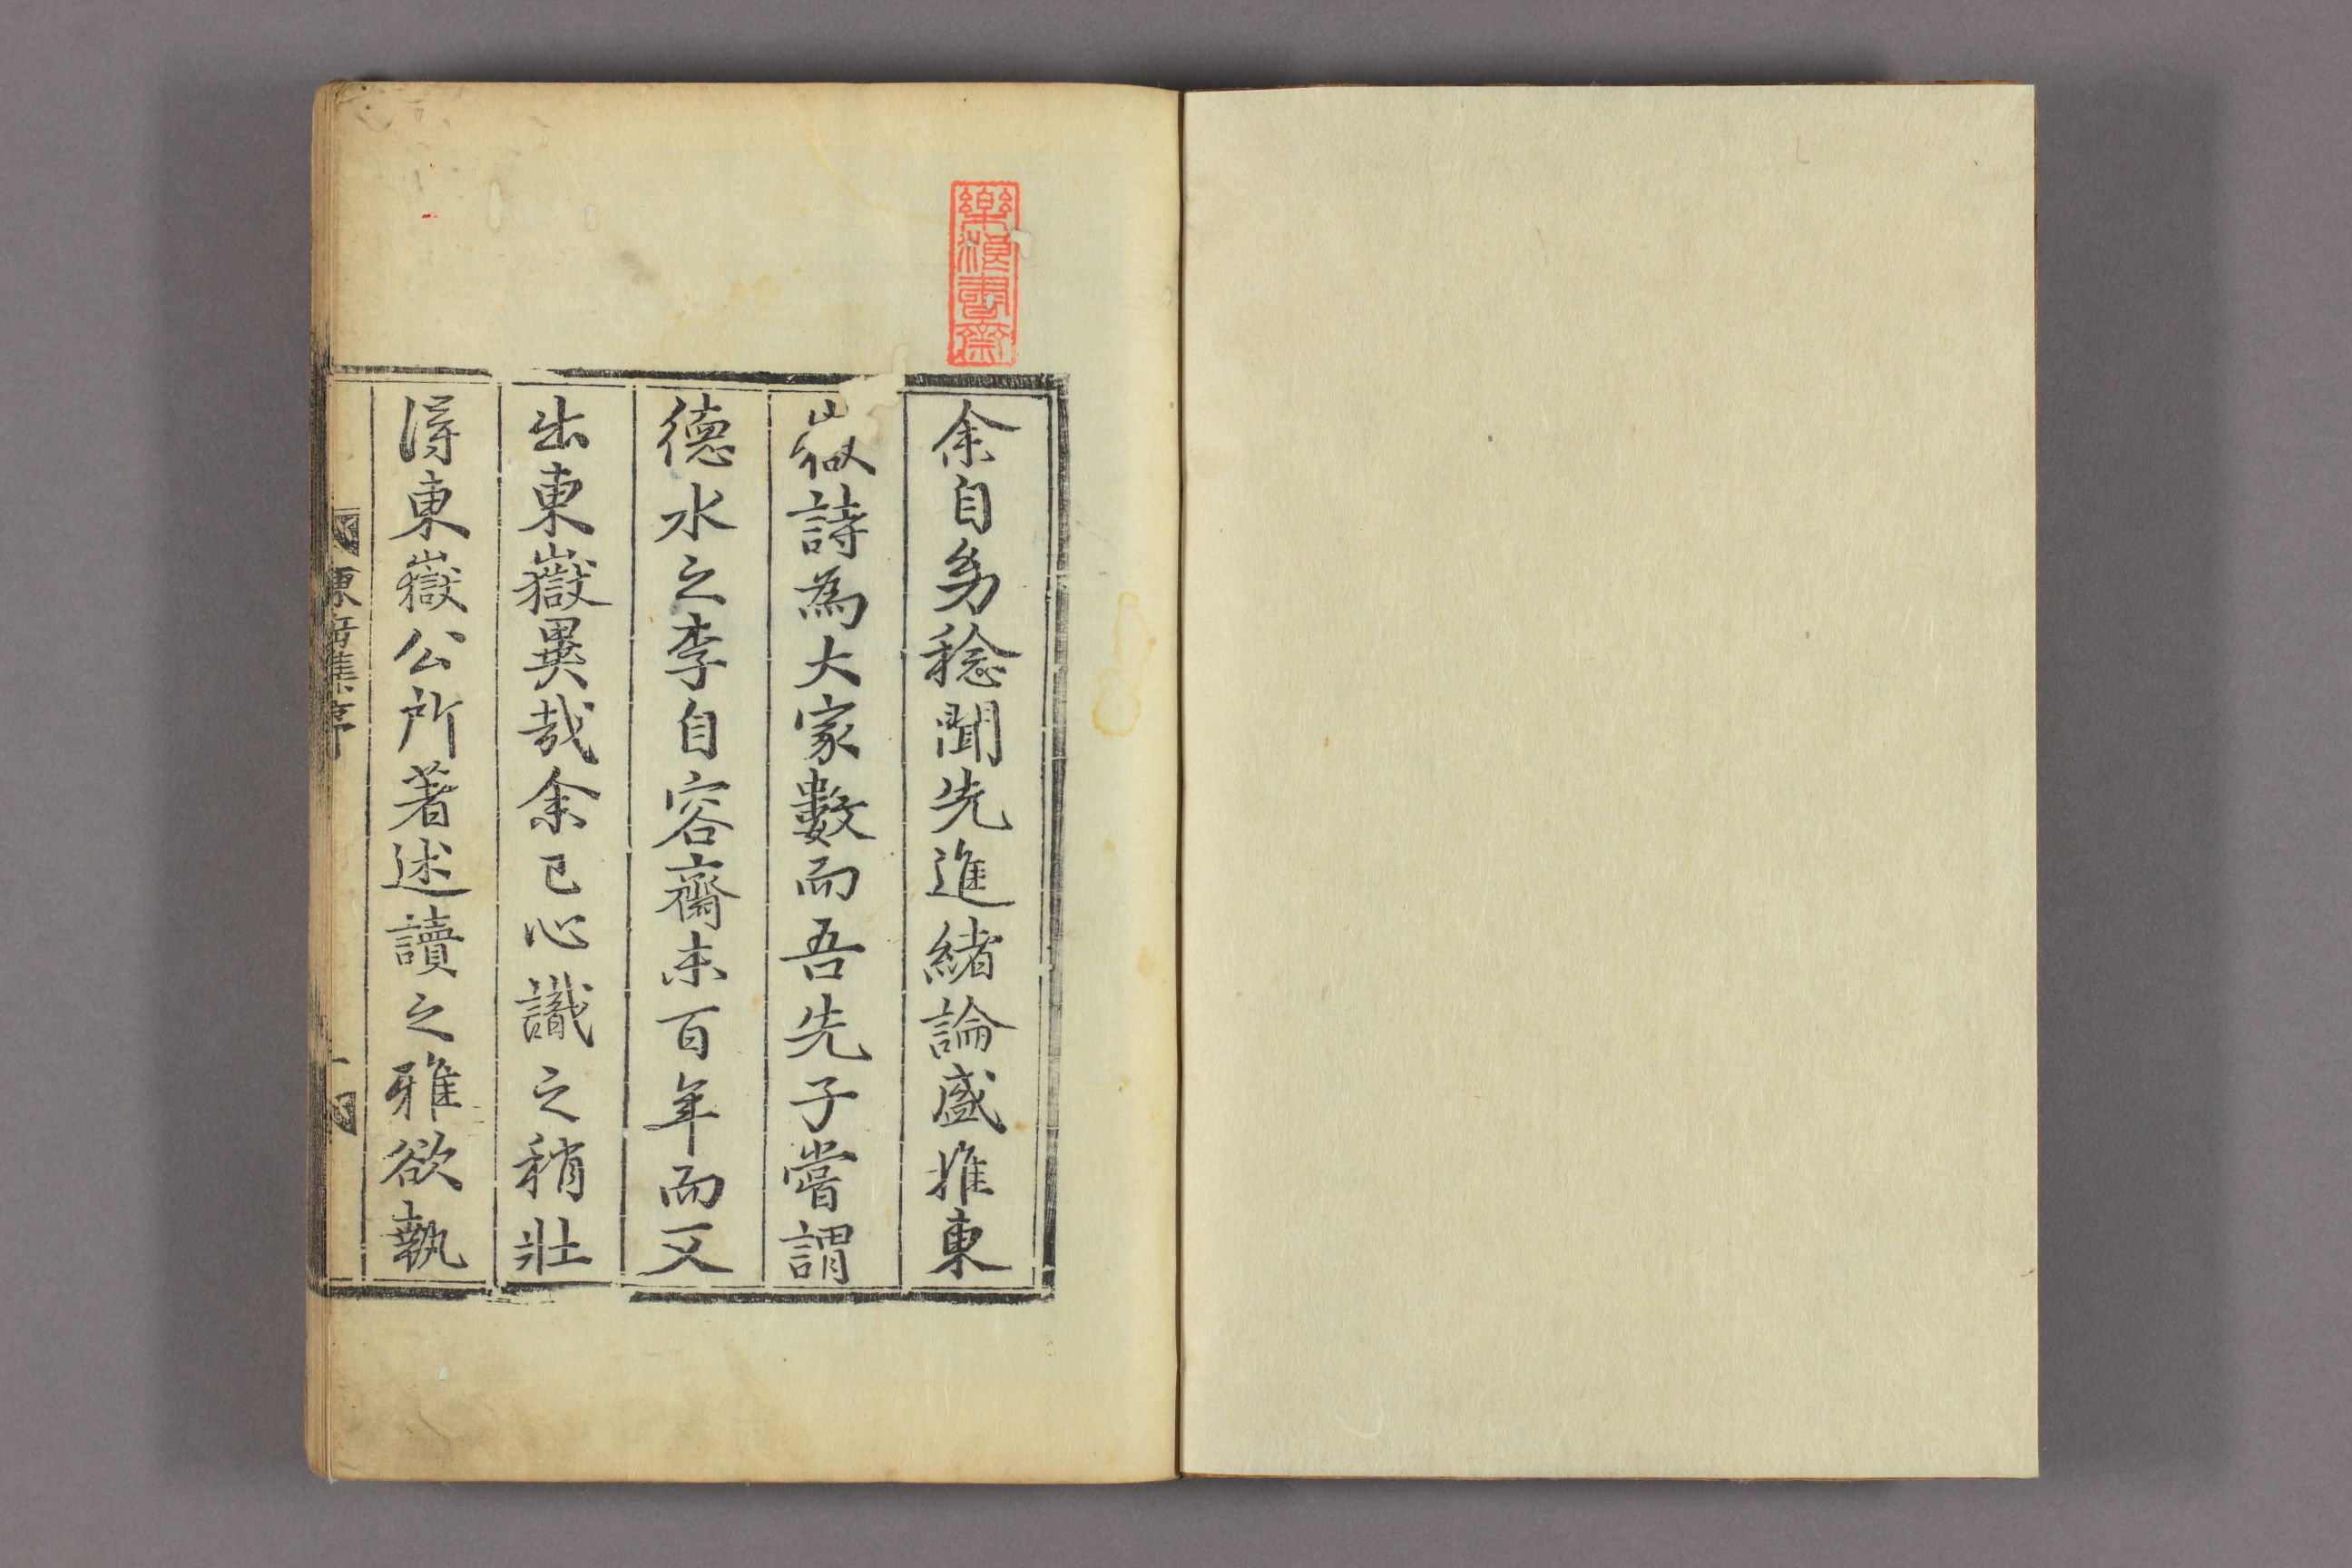 樂浪書齋
余自㓜稔聞先進緒論盛推東
嶽詩為大家數而吾先子嘗謂
德水之李自容齋未百年而又
出東嶽異哉余已心識之稍壯
淂東嶽公所著述讀之雅欲執
東岳集序
一